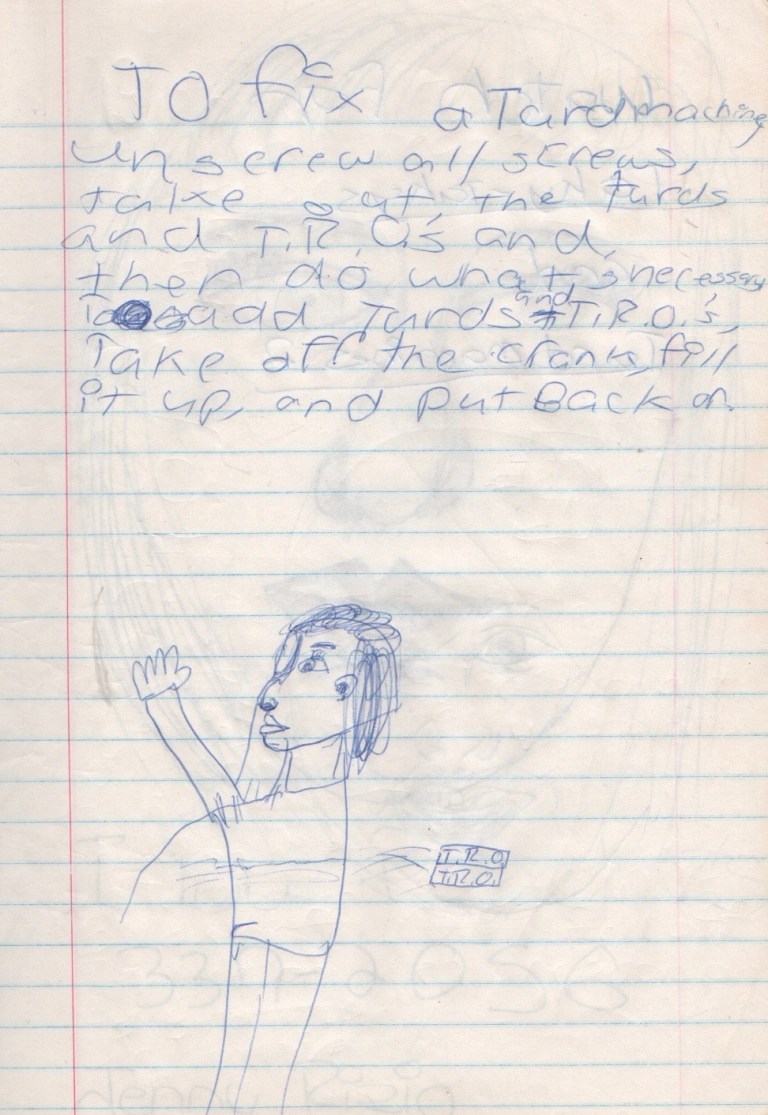 TO fix a Turdmachine
unscrew all screws,
take out, the turds
and T.R.O.'s and,
then do what,s necessary
To add Turds and T.R.O.'s,
Take off the crank, fill
it up, and put Back on.
T.R.O.
T.R.O.